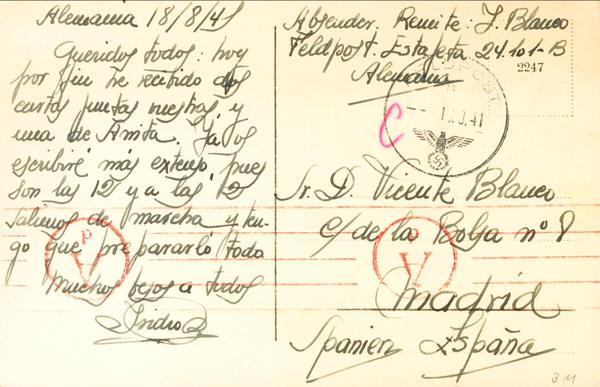 Alemania 18/8/41
Queridos todos: hoy
por fin he recibido dos
cartas juntas vuestras, y
una de Anita. Ya os
escribiré más extenso, pues
son las 12 y a las 12
salimos de marcha y ten-
go que prepararlo todo
Muchos besos a todos
Isidro
Absender. Remite: J. Blanco
Feldpost. Estafeta 24.101-B
Alemania
2247
FELDPOST
.9.41
C
Sr. D. Vicente Blanco
c/ de la Bolsa nº 8
Madrid
Spanien España
A d
A d
3 M